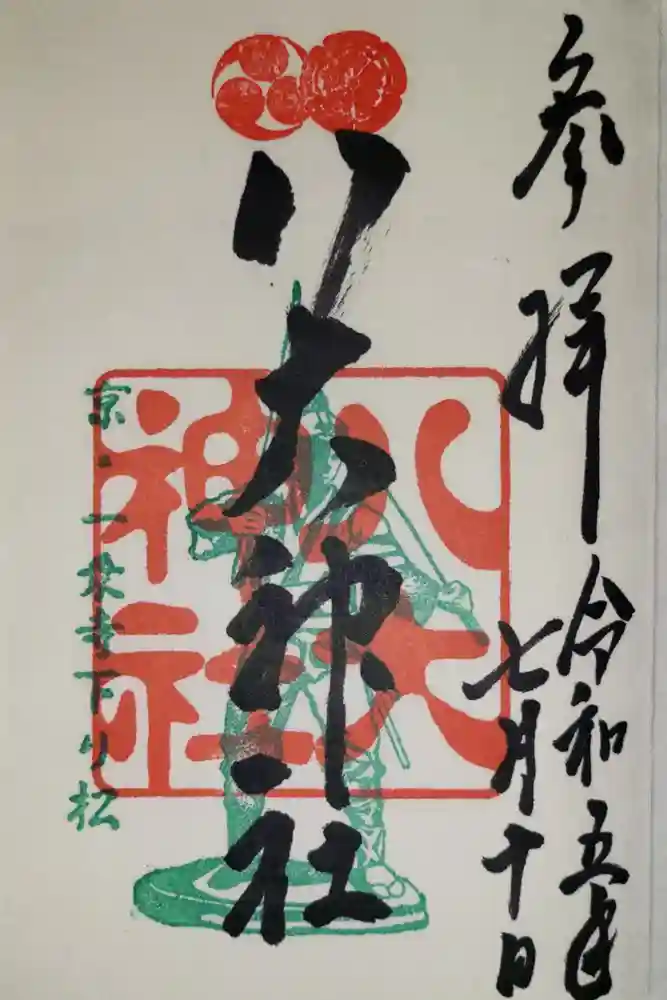 参拝
令和五年
七月十日
八大神社
八大
神社
京・一乗寺下り松